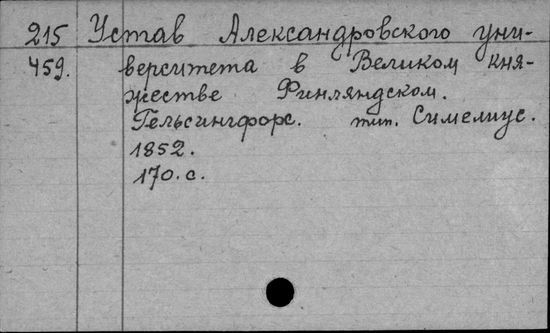 215 Устав Александровского уни-
459. верситета в Великом кня-
жестве Финляндском.
Гельсингфорс. тип. Симелиус.
1852.
170.с.